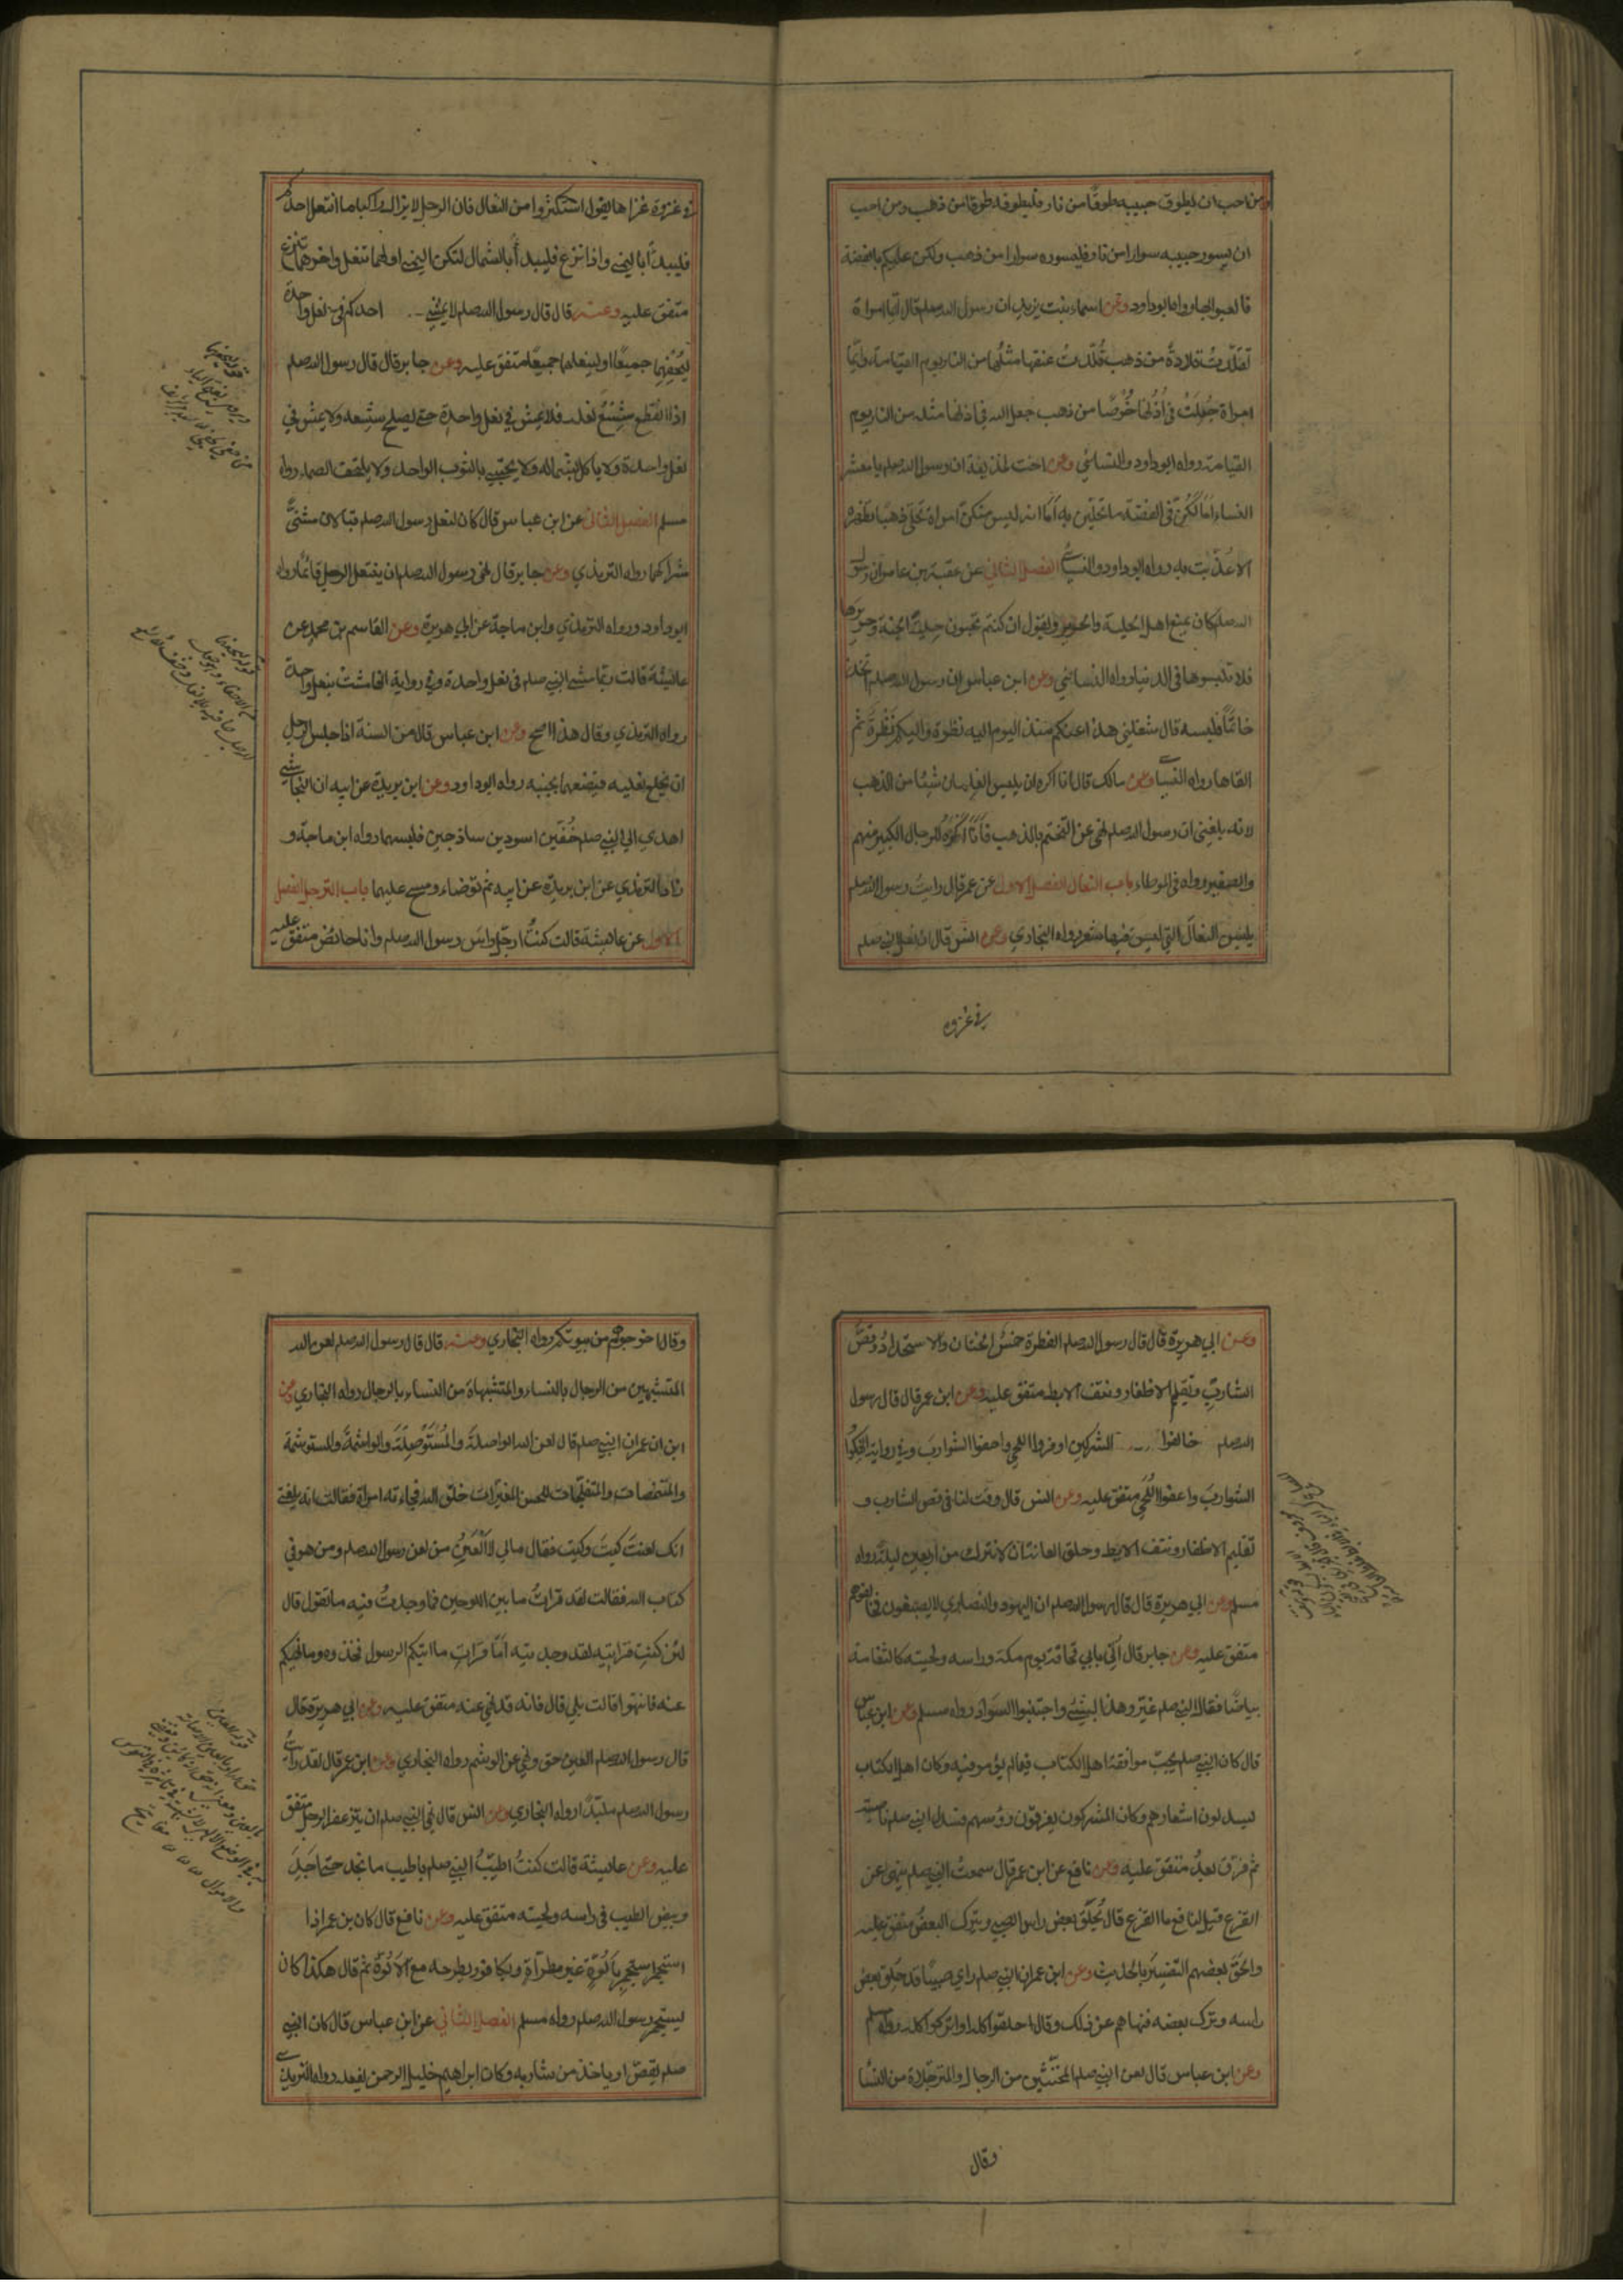 ومن احب ان يطوق حبيبه طوقا من نار فليطوقه طوقا من ذهب ومن احب
ان يسور حبيبه سوارا من نار فليسوره سوارا من ذهب ولكن عليكم بالفضة
فالعبوا بها رواه ابو داود وعن اسماء بنت يزيد ان رسول الله صلعم قال ايما امراة
تقلدت قلادة من ذهب قُلّدت عنقها مثلها من النار يوم القيامة وايما
امراة جعلت في اذنها خُرْصًا من ذهب جعل الله في اذنها مثله من النار يوم
القيامة رواه ابو داود والنسائي وعن اخت لحذيفة ان رسول الله صلعم يا معشر
النساء اما لكن في الفضة ما تحلين به اما انه ليس منكن امراة تحلى ذهبا تظهره
الا عُذّبت به رواه ابو داود والنسائي الفصل الثاني عن عقبة بن عامر ان رسول
الله صلعم كان يمنع اهل الحلية والحرير ويقول ان كنتم تحبون حلية الجنة وحريرها
فلا تلبسوها في الدنيا رواه النسائي وعن ابن عباس ان رسول الله صلعم اتخذ
خاتما فلبسه قال شغلني هذا عنكم منذ اليوم اليه نظرة واليكم نَظْرَة ثم
القاها رواه النسائي وعن مالك قال انا اكره ان يلبس الغلمان شيئا من الذهب
لانه بلغني ان رسول الله صلعم نهى عن التختم بالذهب فَاَنَا اَكْرَهُ للرجال الكبير منهم
والصغير رواه في الموطاء باب النعال الفصل الاول عن عمر قال رايت رسول الله صلعم
يلبس النعال التي ليس فيها شعر رواه البخاري وعن انس قال ان نعل النبي صلعم
في غزوه
في غزوة غزاها يقول استكثروا من النعال فان الرجل لا يزال راكبا ما انتعل احدكم
فليبدأ باليمنى واذا نزع فليبدأ بالشمال لتكن اليمنى اولهما تنعل واخرهما تنزع
متفق عليه وعنه قال قال رسول الله صلعم لا يمشي احدكم في نعل واحدة
ليُحْفِهِما جميعًا او لينعلهما جميعًا متفق عليه وعن جابر قال قال رسول الله صلعم
اذا انقطع شِسْعُ نعله فلا يمش في نعل واحدة حتى يصلح شسعه ولا يمش في
نعل واحدة ولا ياكل بشماله ولا يحتبي بالثوب الواحد ولا يلتحف الصماء رواه
مسلم الفصل الثاني عن ابن عباس قال كان لنعل رسول الله صلعم قبالان مثنىً
شراكهما رواه الترمذي وعن جابر قال نهى رسول الله صلعم ان ينتعل الرجل قائما رواه
ابو داود ورواه الترمذي وابن ماجة عن ابي هريرة وعن القاسم بن محمد عن
عائشة قالت ربما مشى النبي صلعم في نعل واحدة وفي رواية انها مشت بنعل واحدة
رواه الترمذي وقال هذا اصح وعن ابن عباس قال من السنة اذا جلس الرجل
ان يخلع نعليه فيضعهما بجنبه رواه ابو داود وعن ابن بريدة عن ابيه ان النجاشي
اهدى الى النبي صلعم خُفَّين اسودين ساذجين فلبسهما رواه ابن ماجة و
زاد الترمذي عن ابن بريدة عن ابيه ثم توضاء ومسح عليهما باب الترجل الفصل
الاول عن عائشة قالت كنتُ ارجّل راس رسول الله صلعم وانا حائض متفق عليه
وعن ابي هريرة قال قال رسول الله صلعم الفطرة خمسٌ الختان والاستحداد وقصّ
الشارب وتقليم الاظفار ونتف الابط متفق عليه وعن ابن عمر قال قال رسول
الله صلعم خالفوا المشركين اوفروا اللحى واحفوا الشوارب وفي رواية انهكوا
الشوارب واعفوا اللُّحى متفق عليه وعن انس قال وقت لنا في قص الشارب و
تقليم الاظفار ونتف الابط وحلق العانة ان لا نترك من اربعين ليلة رواه
مسلم وعن ابي هريرة قال قال رسول الله صلعم ان اليهود والنصارى لا يصبغون فخالفوهم
متفق عليه وعن جابر قال اُتي بابي قحافة يوم مكة وراسه ولحيته كالثغامة
بياضًا فقال النبي صلعم غيّروا هذا بشيءٍ واجتنبوا السّواد رواه مسلم وعن ابن عباس
قال كان النبي صلعم يحب موافقة اهل الكتاب فيما لم يؤمر فيه وكان اهل الكتاب
يسدلون اشعارهم وكان المشركون يفرقون رؤسهم فسدل النبي صلعم ناصيته
ثم فرق بعدُ متفق عليه وعن نافع عن ابن عمر قال سمعتُ النبي صلعم ينهى عن
القزع قيل لنافع ما القزع قال يُحلَق بعض راس الصبي ويترك البعض متفق عليه
والحق بعضهم التفسير بالحديث وعن ابن عمر ان النبي صلعم راى صبيًا قد حلق بعض
راسه وترك بعضه فنهاهم عن ذلك وقال احلقوا كله او اتركوا كله رواه مسلم
وعن ابن عباس قال لعن النبي صلعم المخنّثين من الرجال والمترجّلاة من النسا
وقال
وقال اخرجوهم من بيوتكم رواه البخاري وعنه قال قال رسول الله صلعم لعن الله
المتشبهين من الرجال بالنساء والمتشبهاة من النساء بالرجال رواه البخاري وعن
ابن ان عمر ان النبي صلعم قال لعن الله الواصلةَ والمُسْتَوْصِلَةَ والواشمةَ والمستوشمة
والمتنمصات والمتفلجات للحسن المغيّرات خلق الله فجاءته امراة فقالت انه بلغني
انك لعنتَ كيتَ وكيت فقال مالي لا اَلْعَنُ من لعن رسول الله صلعم ومن هو في
كتاب الله فقالت لقد قراتُ ما بين اللوحين فما وجدتُ فيه ما تقول قال
لئن كنتِ قراتيه لقد وجدتيه اَمَا قراتِ ما اتيكم الرسول فخذوه وما نهيكم
عنه فانتهوا قالت بلى قال فانه قد نهى عنه متفق عليه وعن ابي هريرة قال
قال رسول الله صلعم العين حق ونهى عن الوشم رواه البخاري وعن ابن عمر قال لقد رايتُ
رسول الله صلعم ملبّدًا رواه البخاري وعن انس قال نهى النبي صلعم ان يتزعفر الرجل متفق
عليه وعن عايشة قالت كنتُ اطيّبُ النبي صلعم باطيب ما نجد حتى اجدَ
وبيص الطيب في راسه ولحيته متفق عليه وعن نافع قال كان بن عمر اذا
استجمر استجمر بِاَلُوَّةٍ غير مطرّاةٍ وبكافور يطرحه مع الاَلُوّة ثم قال هكذا كان
يستجمر رسول الله صلعم رواه مسلم الفصل الثاني عن ابن عباس قال كان النبي
صلعم يقصّ او ياخذ من شاربه وكان ابراهيم خليل الرحمن يفعله رواه الترمذي